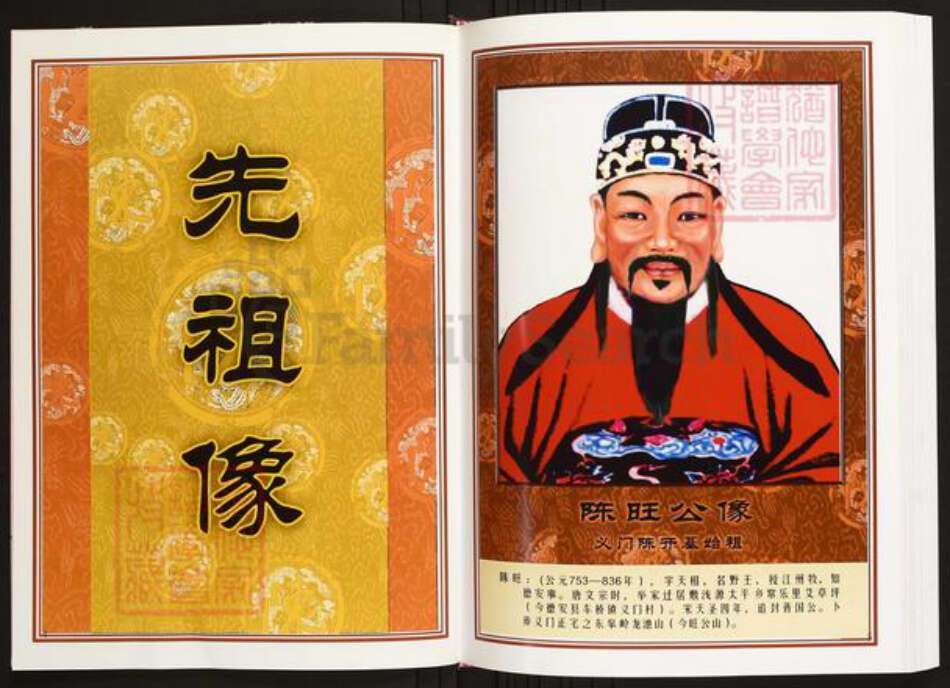 先祖像
陈旺公像
义门陈开基始祖
陈旺:(公元753—836年),字天相,名野王,授江州牧,知
德安事。唐文宗时,举家过居敷浅源太平乡常乐里艾草坪
(今德安县车桥镇义门村)。宋天圣四年,追封晋国公。卜
葬义门正宅之东皋岭龙池山(今旺公山)。
FamilySearch